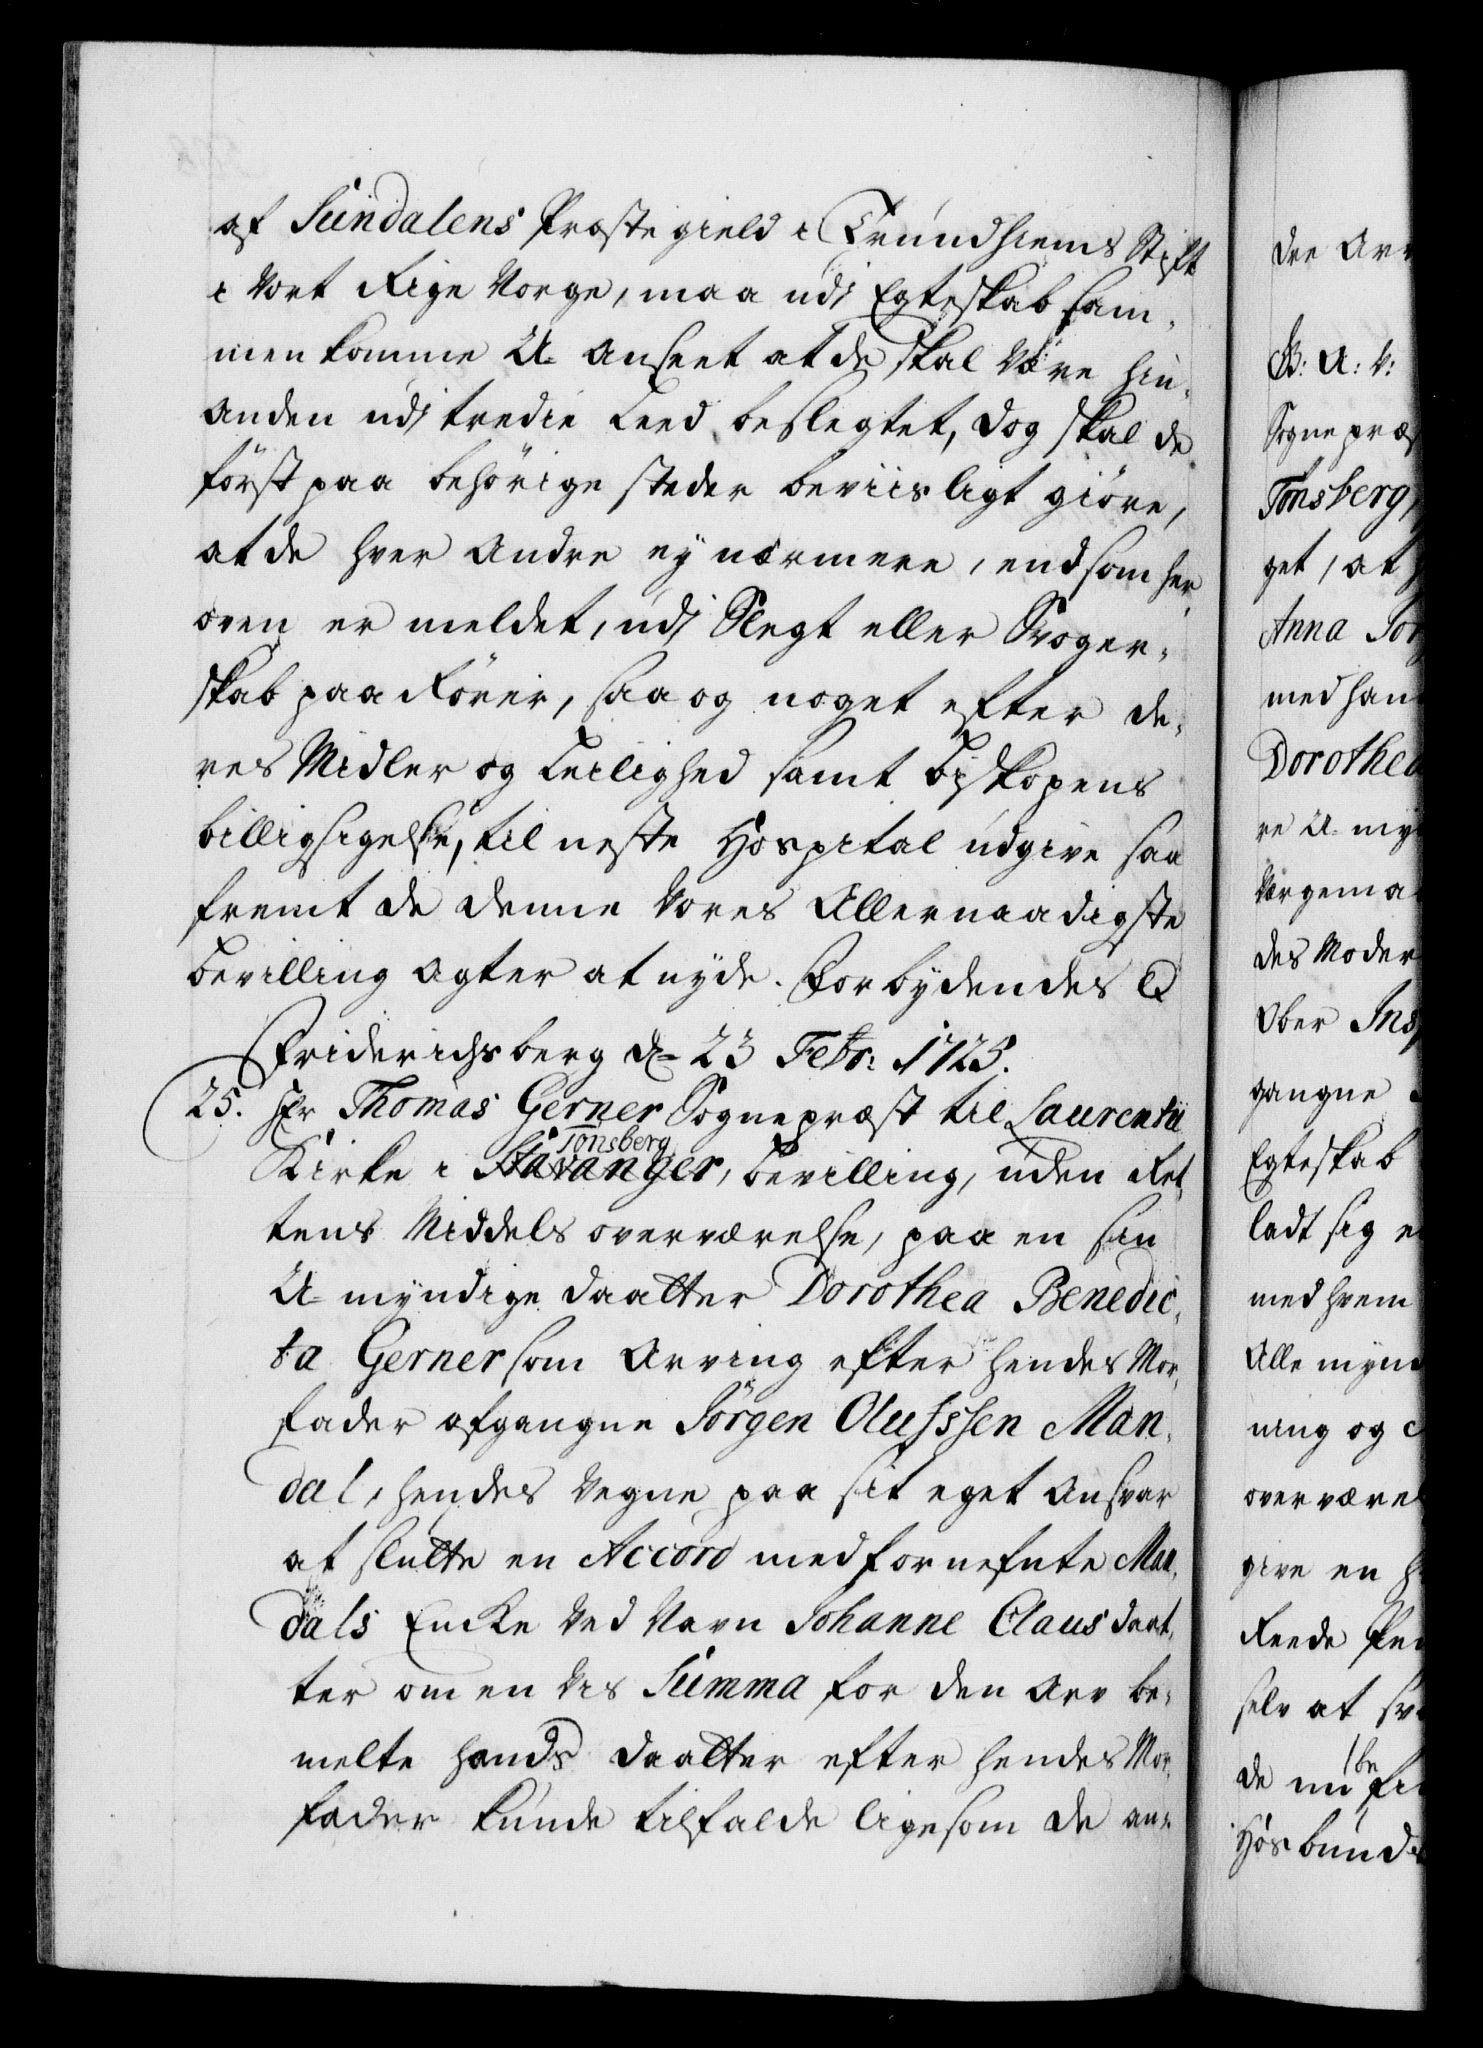 af Sundalens Præstegield i Trundhiems Stift
i Vort Rige Norge, maa udj Egteskab sam-
menkomme U-anseet at de skal være hin-
anden udj tredie Leed beslegtet, dog skal de
först paa behörige steder beviisligt giöre,
at de hver andre ey nærmere, end som her
oven er meldet, udj Slegt eller Svoger-
skab paarörer, saa og noget efter de-
res Midler og Leilighed samt Biskopens
billigsigelse, til neste Hospital udgive saa
fremt de denne Vores Allernaadigste
Bevilling agter at nyde. Forbydendes &
Friderichsberg d= 23 Febr: 1725.
25. Hr Thomas Gerner Sognepræst til Laurentii
Tonsberg
Kirke i Stavanger, Bevilling, uden Ret-
tens Middels overværelse, paa en sin
U-myndige Daatter Dorothea Benedic-
ta Gerner som Arving efter hendes Mor-
fader afgangne Jörgen Olufssen Man-
dal, hendes Vegne paa sit eget Ansvar
at slutte en Accord med fornefnte Man-
dals Encke ved Navn Johanne Claus daat-
ter om en vis Summa for den Arv be-
melte hands Daatter efter hendes Mor-
fader kunde tilfalde ligesom de an-
dre Arv
B: A: V:
Sognepræs
Tonsberg,
get, at
Anna Jör
med han
Dorothea
re U-my
Værgema
des Moder
Ober Ins
gangne
Egteskab
ladt sig
med hvem
Alle mynd
ning og
overværel
give en
Reede Pen
selv at sva
be
de nu fi
Hosbunds